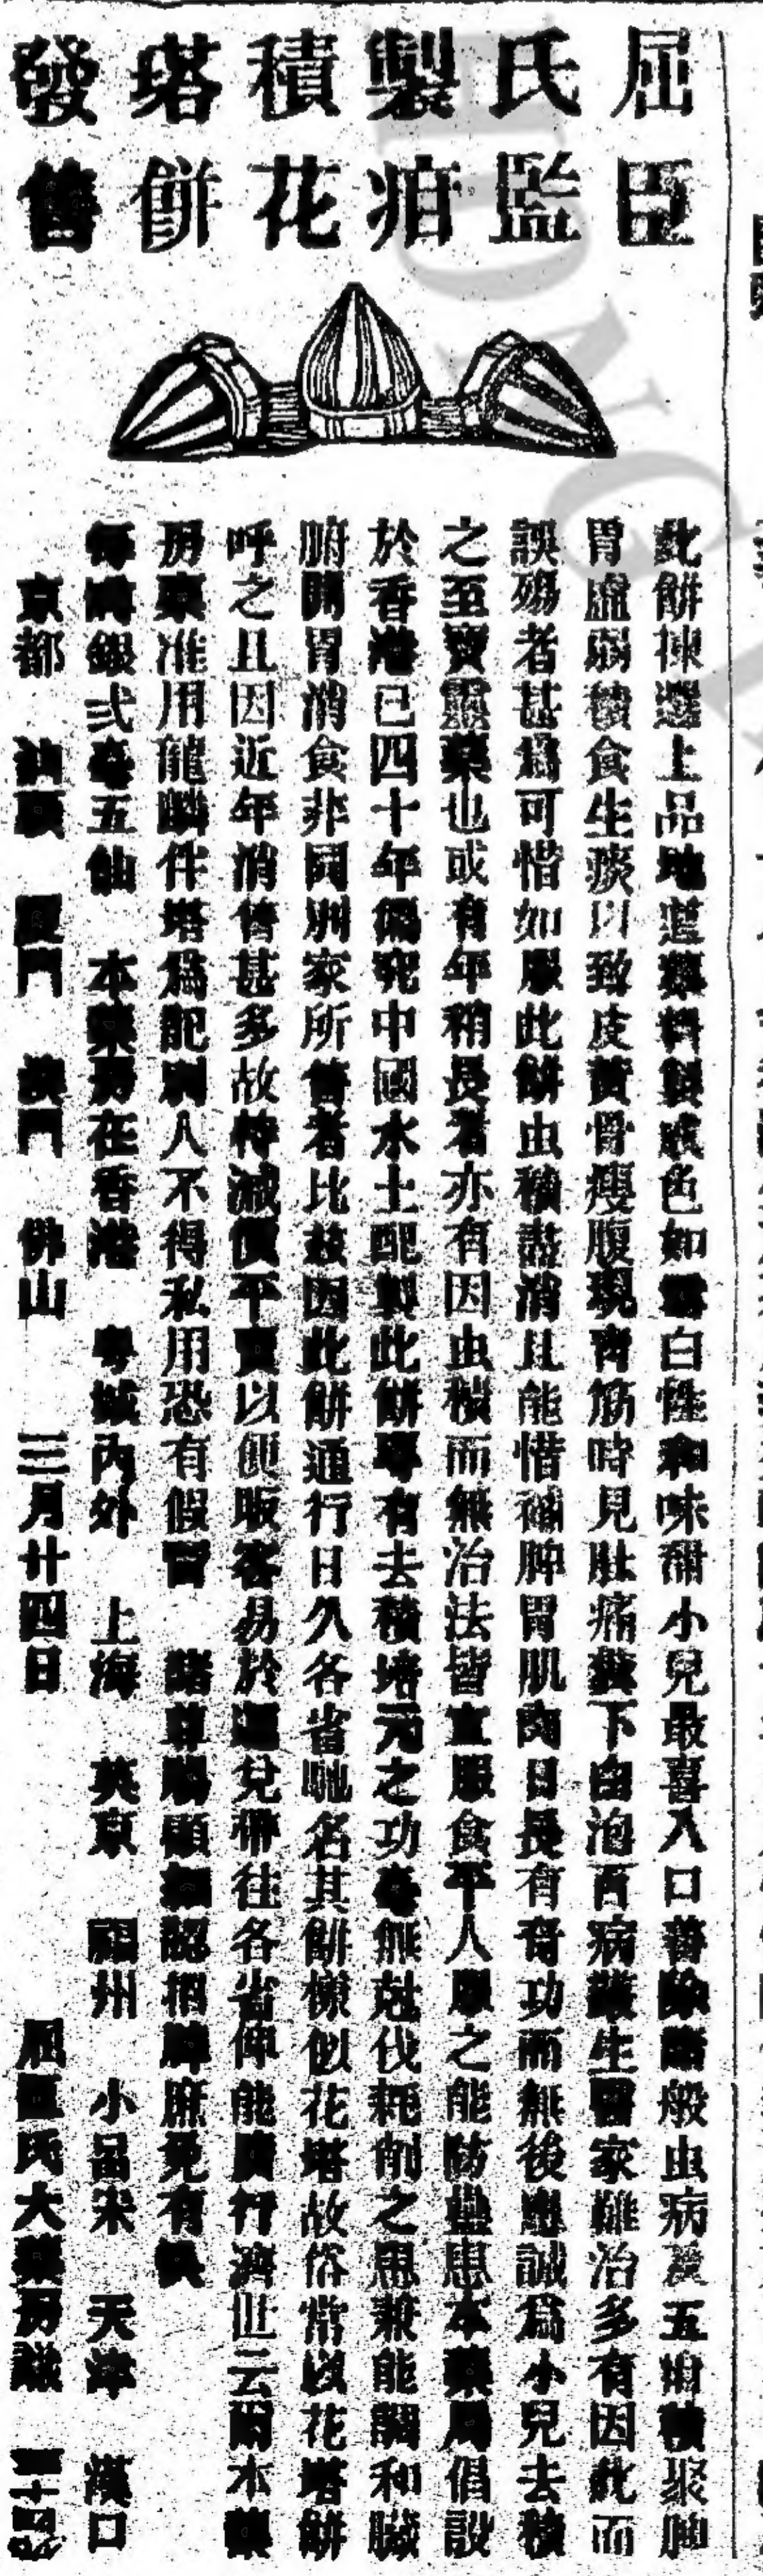 屈臣
氏監
製疳
積花
塔餅
發售
此餅揀選上品地道藥料製成色如雪白性和味甜小兒最喜入口善除諸般虫病及五疳積聚脾
胃虛弱積食生痰以致皮黃骨瘦腹現青筋時見肚痛糞下白泡百病叢生醫家難治多有因此而
誤殤者甚爲可惜如服此餅虫積盡消且能惜補脾胃肌肉日長有奇功而無後患誠爲小兒去積
之至寶靈藥也或有年稍長者亦有因虫積而無治法皆宜服食平人服之能防蠱患本藥局倡設
於香港已四十年備究中國水土配製此餅專有去積培元之功毫無尅伐耗削之患兼能調和臟
腑開胃消食非同別家所售者比茲因此餅通行日久各省馳名其餅樣似花塔故俗常以花塔餅
呼之且因近年消售甚多故特減價平賣以便販客易於 兌帶往各省俾能廣行濟世云爾本藥
房稟准用龍麟件塔爲記別人不得私用恐有假冒 諸尊賜顧 認招牌庶免有悞
每 銀弍毫五仙 本藥房在香港 粤城內外 上海 英京 福州 小呂宋 天津 漢口
京都 汕頭 厦門 澳門 佛山 三月廿四日 屈臣氏大藥房